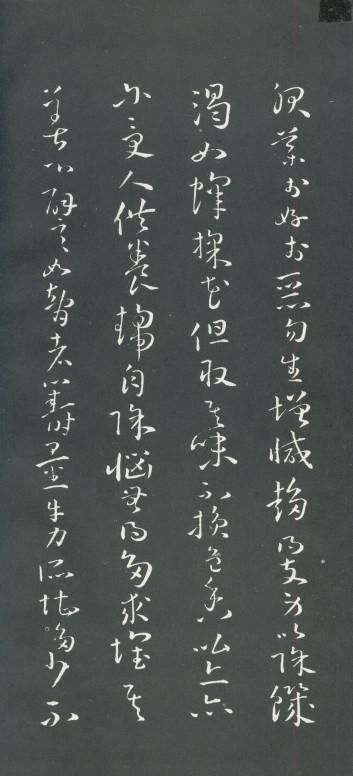 服藥於好於惡勿生增減趣得支身以除饑
渴如蜂採花但取其味不損色香比丘亦
尒受人供養趣自除惱無得多求壞其
善心譬如智者籌量牛力所堪多少不